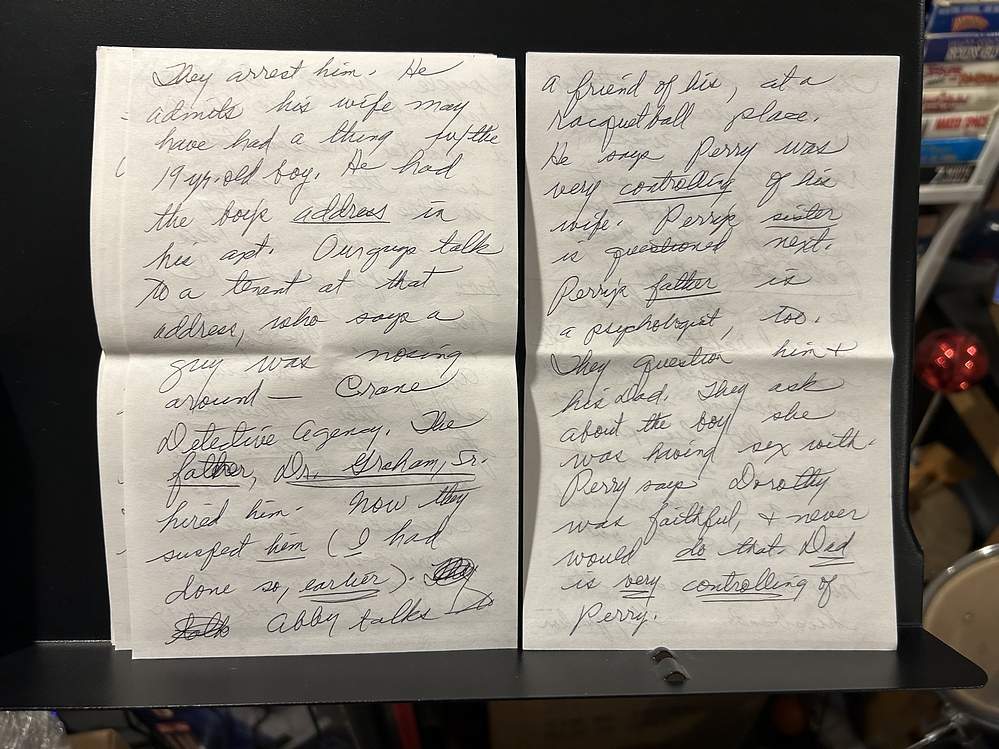 They arrest him. He
admits his wife may
have had a thing for/the
19 yr. old boy. He had
the boy's address in
his apt. Our guys talk
to a tenant at that
address, who says a
guy was nosing
around — Crane
Detective Agency. The
father, Dr. Graham, Sr.
hired him. Now they
suspect him (I had
done so, earlier). They
talk Abby talks to
a friend of his, at a
racquetball place.
He says Perry was
very controlling of his
wife. Perry's sister
is questioned next.
Perry's father is
a psychologist, too.
They question him +
his Dad. They ask
about the boy she
was having sex with.
Perry says Dorothy
was faithful, + never
would do that. Dad
is very controlling of
Perry.
MATH SPACE